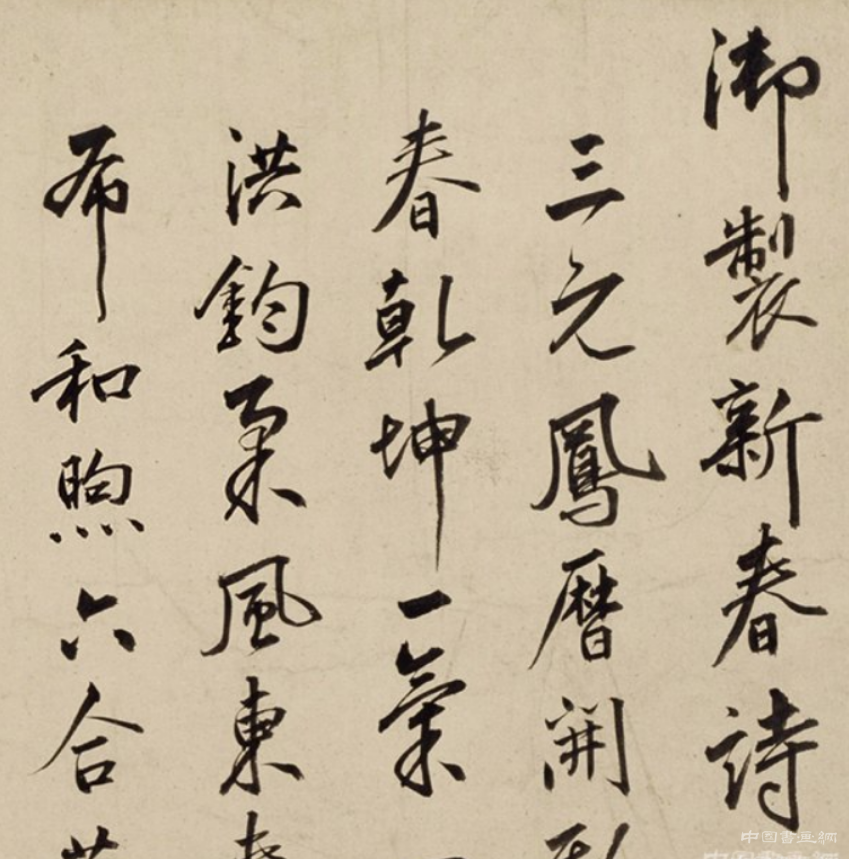 御製新春詩
三元鳳曆開
春乾坤一氣
洪鈞柔風東
布和煦六合
中国書画網